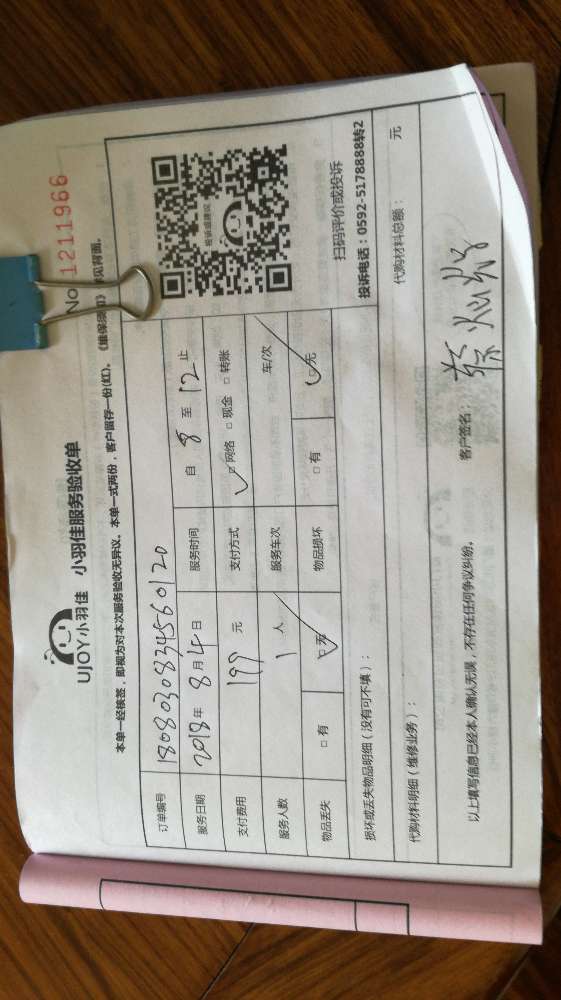 UJOY小羽佳 小羽佳服务验收单
No 1211966
本单一经核签，即视为对本次服务验收无异议。本单一式两份，客户留存一份(红)。《维保须知》详见背面。
订单编号 1808030834560120
服务日期 2018年8月4日 服务时间 自 8 至 12 止
支付费用 199 元 支付方式 ☑网络 □现金 □转账
服务人数 1 人 服务车次 车/次
物品丢失 □有 ☑无 物品损坏 □有 ☑无
扫码评价或投诉
投诉电话：0592-5178888转2
损坏或丢失物品明细（没有可不填）：
代购材料明细（维修业务）： 代购材料总额： 元
以上填写信息已经本人确认无误，不存在任何争议纠纷。 客户签名： 蔡